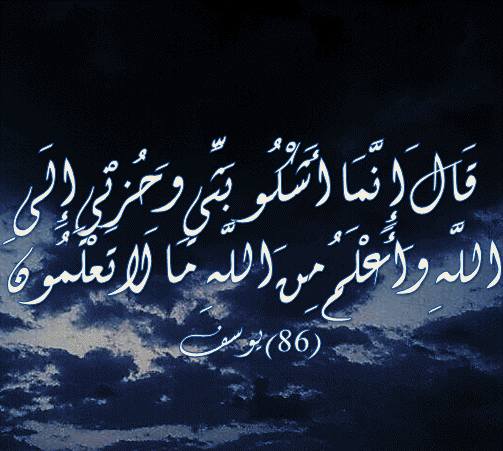 قَالَ إِنَّمَا أَشْكُو بَثِّي وَحُزْنِي إِلَى
اللَّهِ وَأَعْلَمُ مِنَ اللَّهِ مَا لَا تَعْلَمُونَ
(86) يوسف